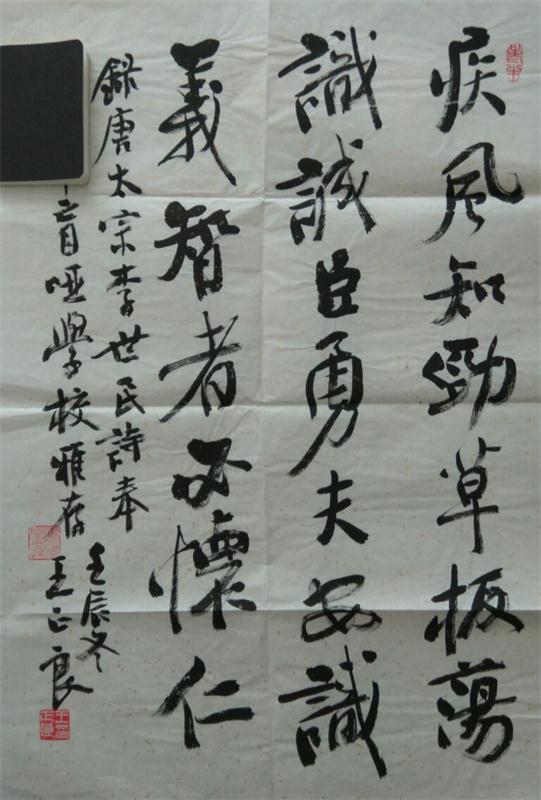 疾風知勁草板蕩
識誠臣勇夫安識
義智者必懷仁
錄唐太宗李世民詩奉
盲啞學校雅存
壬辰冬
王正良